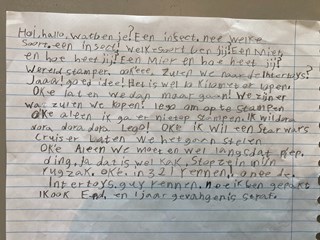 Hoi, hallo, wat ben je? Een insect. nee welke
soort een insect! welke soort ben jij! Een Mier
en hoe heet jij? Een Mier en hoe heet jij?
Wereld stamper. okeee. zulen we naar de intertoys?
Jaaa! goed idee! Het is wel kilometer lopen.
Oke laten we dan maar gaan! We zijn er
wat zullen we kopen! lego om op te stampen
Oke aleen ik ga er nietop stempen. Ik wil dora
dora dora dora Lego! OKe ik wil een Star wars
Cruiser Laten we het gaan stelen
OKe Aleen we moeten wel langs dat piep
ding. Ja dat is wel kak. Stop ze in mijn
rugzak. oke. in 3 2 1 rennen! o nee de
Intertoys guy rennen. nee ik ben gepakt
Ik ook End. en 1 jaar gevangenis straf.